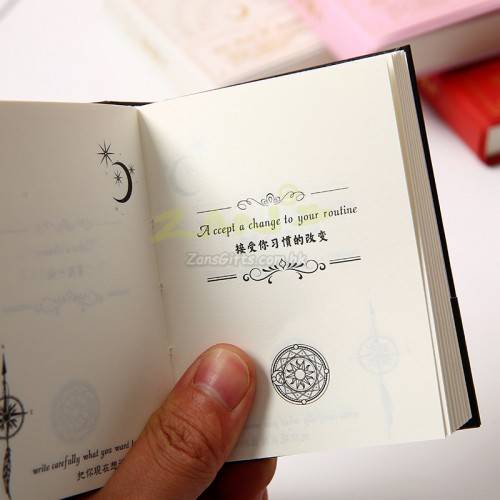 write carefully what you want
把你現在想
A ccept a change to your routine
接受你习惯的改变
ZansGifts.com.hk